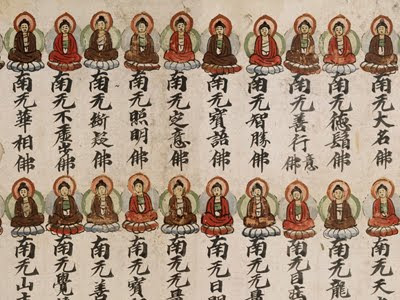 南无大名佛
南无德佛
南无善行意佛
南无智勝佛
南无寶語佛
南无定意佛
南无照明佛
南无斷疑佛
南无不虛光佛
南无華相佛
南无天
南无龍
南无日
南无
南无日明
南无
南无寶
南无善
南无覺
南无山